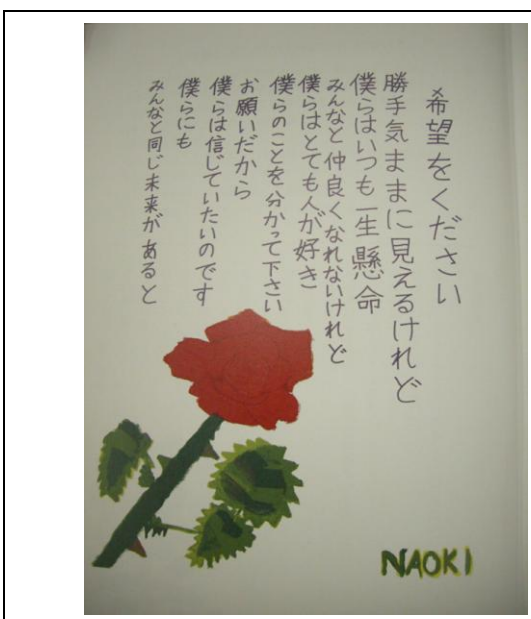 希望をください
勝手気ままに見えるけれど
僕らはいつも一生懸命
みんなと仲良くなれないけれど
僕らはとても人が好き
僕らのことを分かって下さい
お願いだから
僕らは信じていたいのです
僕らにも
みんなと同じ未来があると
NAOKI